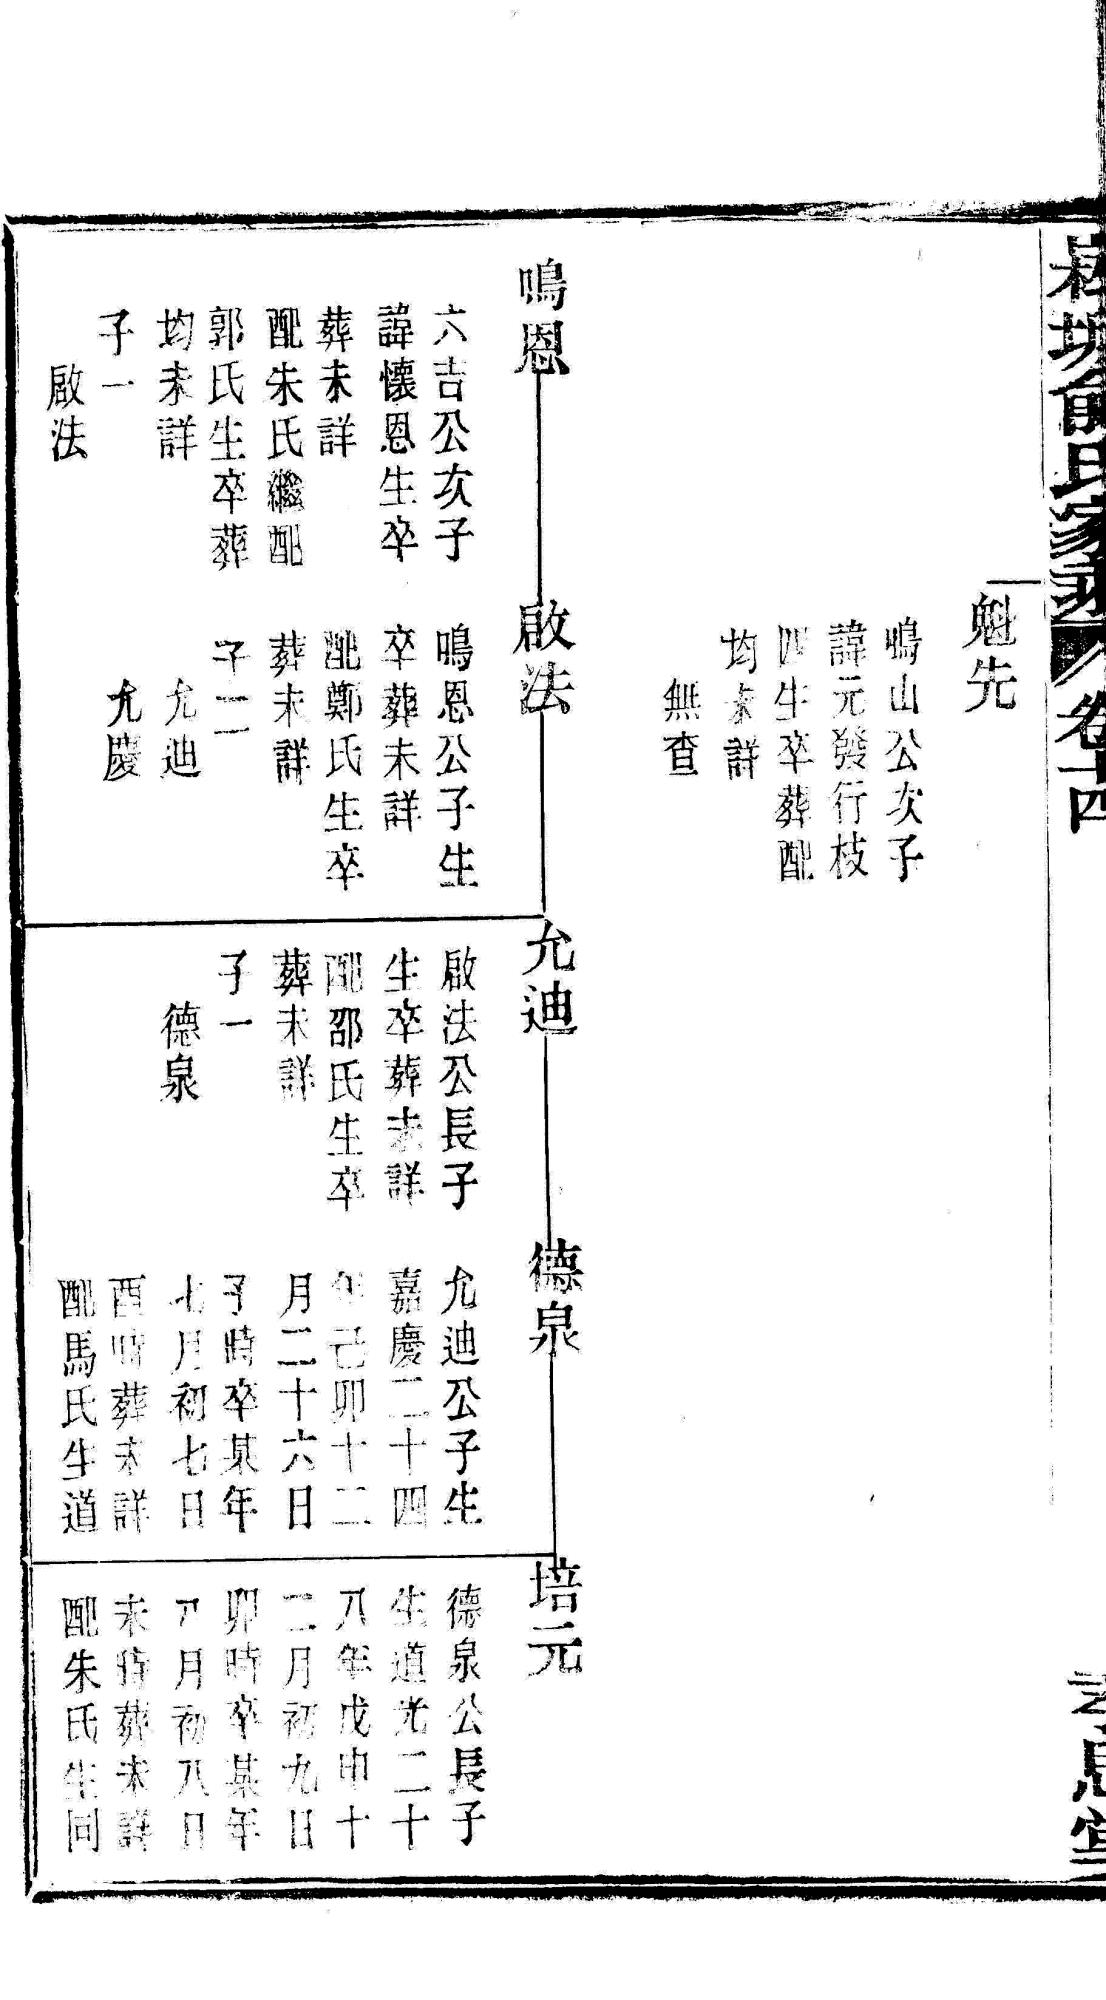 俞氏家
卷十四
思堂
魁先
鳴山公次子
諱元發行枝
四生卒葬配
均未詳
無查
鳴恩
六吉公次子
諱懷恩生卒
葬未詳
配朱氏繼配
郭氏生卒葬
均未詳
子一
啟法
啟法
鳴恩公子生
卒葬未詳
配鄭氏生卒
葬未詳
子二
允迪
允慶
允迪
啟法公長子
生卒葬未詳
配邵氏生卒
葬未詳
子一
德泉
德泉
允迪公子生
嘉慶二十四
年己卯十二
月二十六日
子時卒某年
七月初七日
酉時葬未詳
配馬氏生道
培元
德泉公長子
生道光二十
八年戊申十
二月初九日
卯時卒某年
八月初八日
未時葬未詳
配朱氏生同